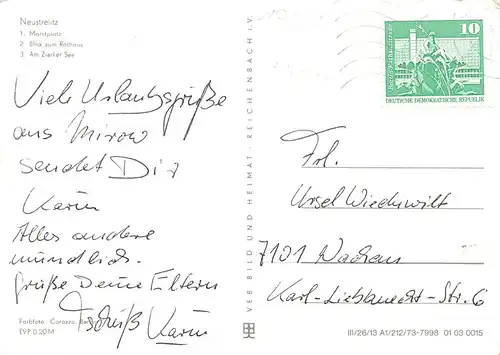 Neustrelitz
1. Marktplatz
2. Blick zum Rathaus
3. Am Zierker See
Viele Urlaubsgrüße
aus Mirow
sendet Dir
Karin
Alles andere
mündlich.
Grüße Deine Eltern
Tschüß Karin
Farbfoto: Corazza,
EVP 0.20 M
VEB BILD UND HEIMAT · REICHENBACH i.V.
10
DEUTSCHE DEMOKRATISCHE REPUBLIK
Frl.
Ursel Wieduwilt
7101 Wachau
Karl-Liebknecht-Str. 6
III/26/13 A1/212/73-7998 01 03 0015